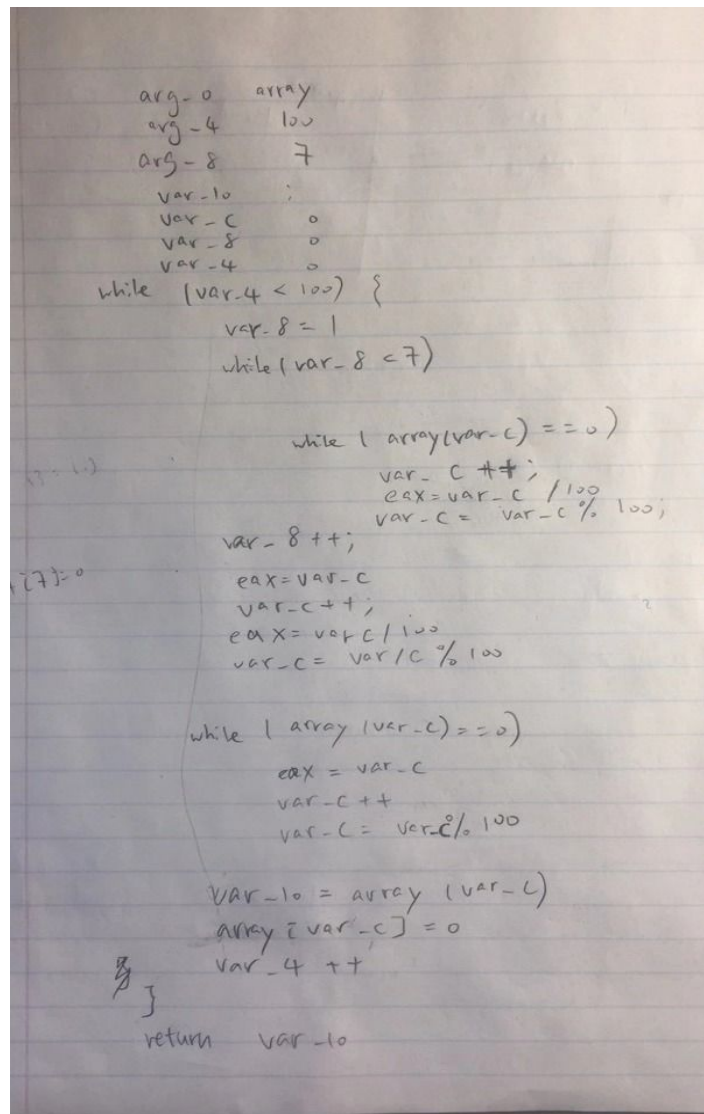 arg-0 array
arg-4 100
arg-8 7
var-10 ;
var-c 0
var-8 0
var-4 0
while (var-4 < 100) {
var-8 = 1
while (var-8 < 7)
while ( array(var-c) == 0)
var-c ++;
eax = var-c /100
var-c = var-c % 100;
var-8 ++;
[7]=0
eax = var-c
var-c ++;
eax = var c / 100
var-c = var/c % 100
while ( array (var-c) == 0)
eax = var-c
var-c ++
var-c = var-c % 100
var-10 = array (var-c)
array [var-c] = 0
var-4 ++
}
return var-10